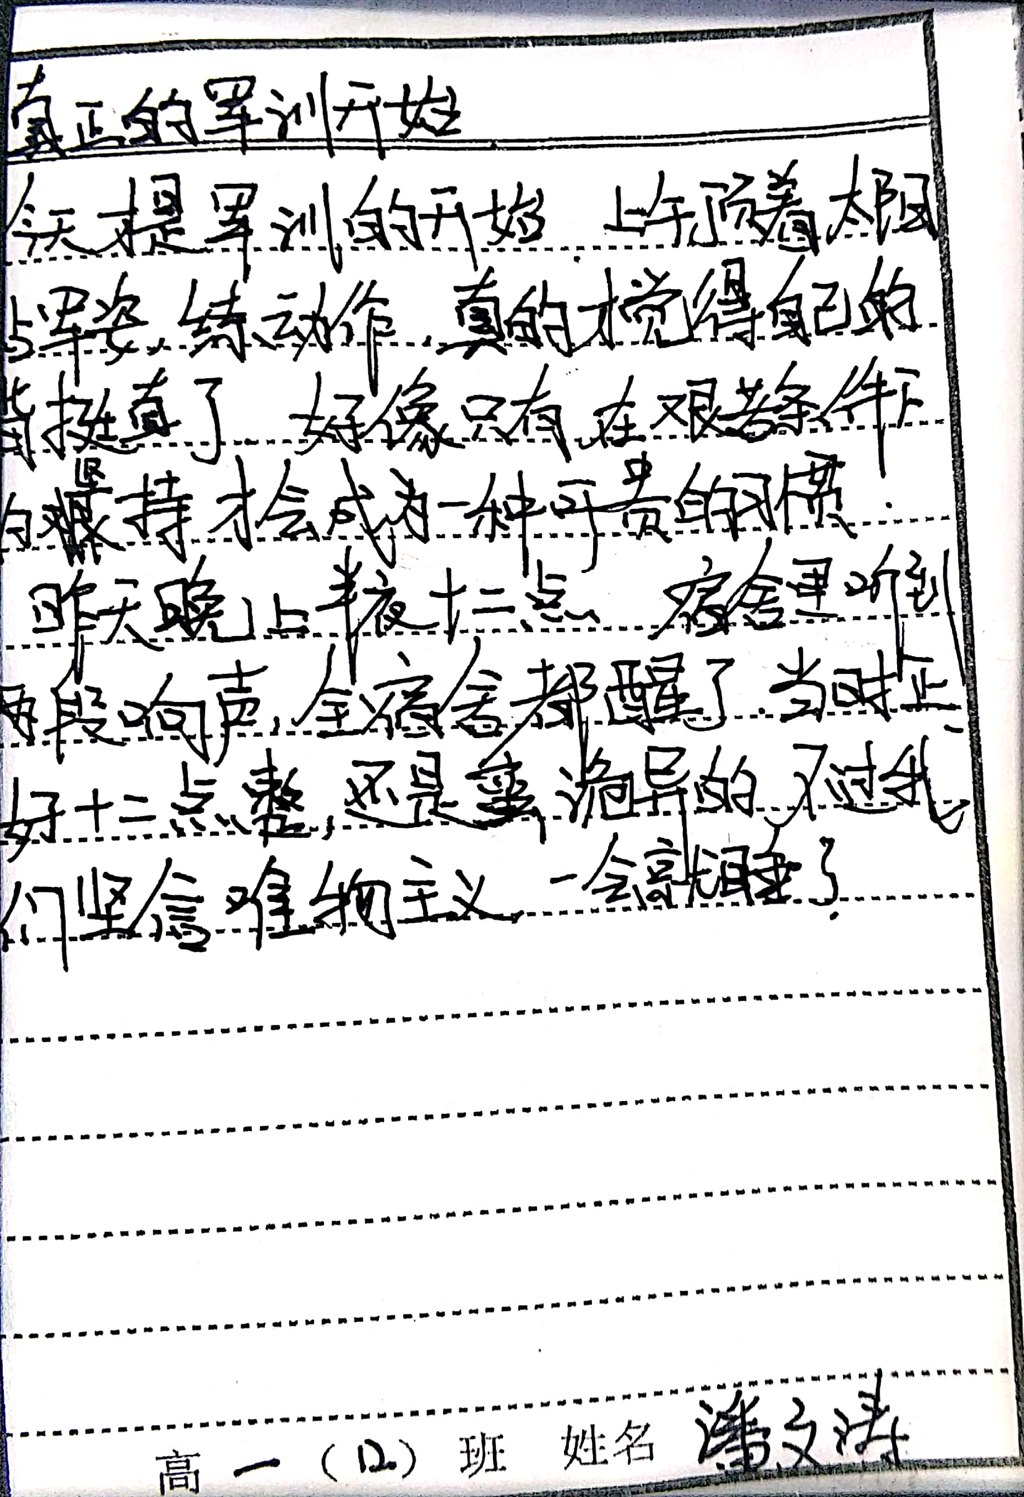 真正的军训开始
今天才是军训的开始.上午顶着太阳
站军姿,练动作,真的才觉得自己的
背挺直了.好像只有在艰苦条件下
的坚持才会成为一种可贵的习惯.
昨天晚上半夜十二点 宿舍里听到
两段响声,全宿舍都醒了.当时正
好十二点整,还是蛮诡异的.不过我
们坚信唯物主义,一会就睡了.
高一(12)班 姓名 潘文涛